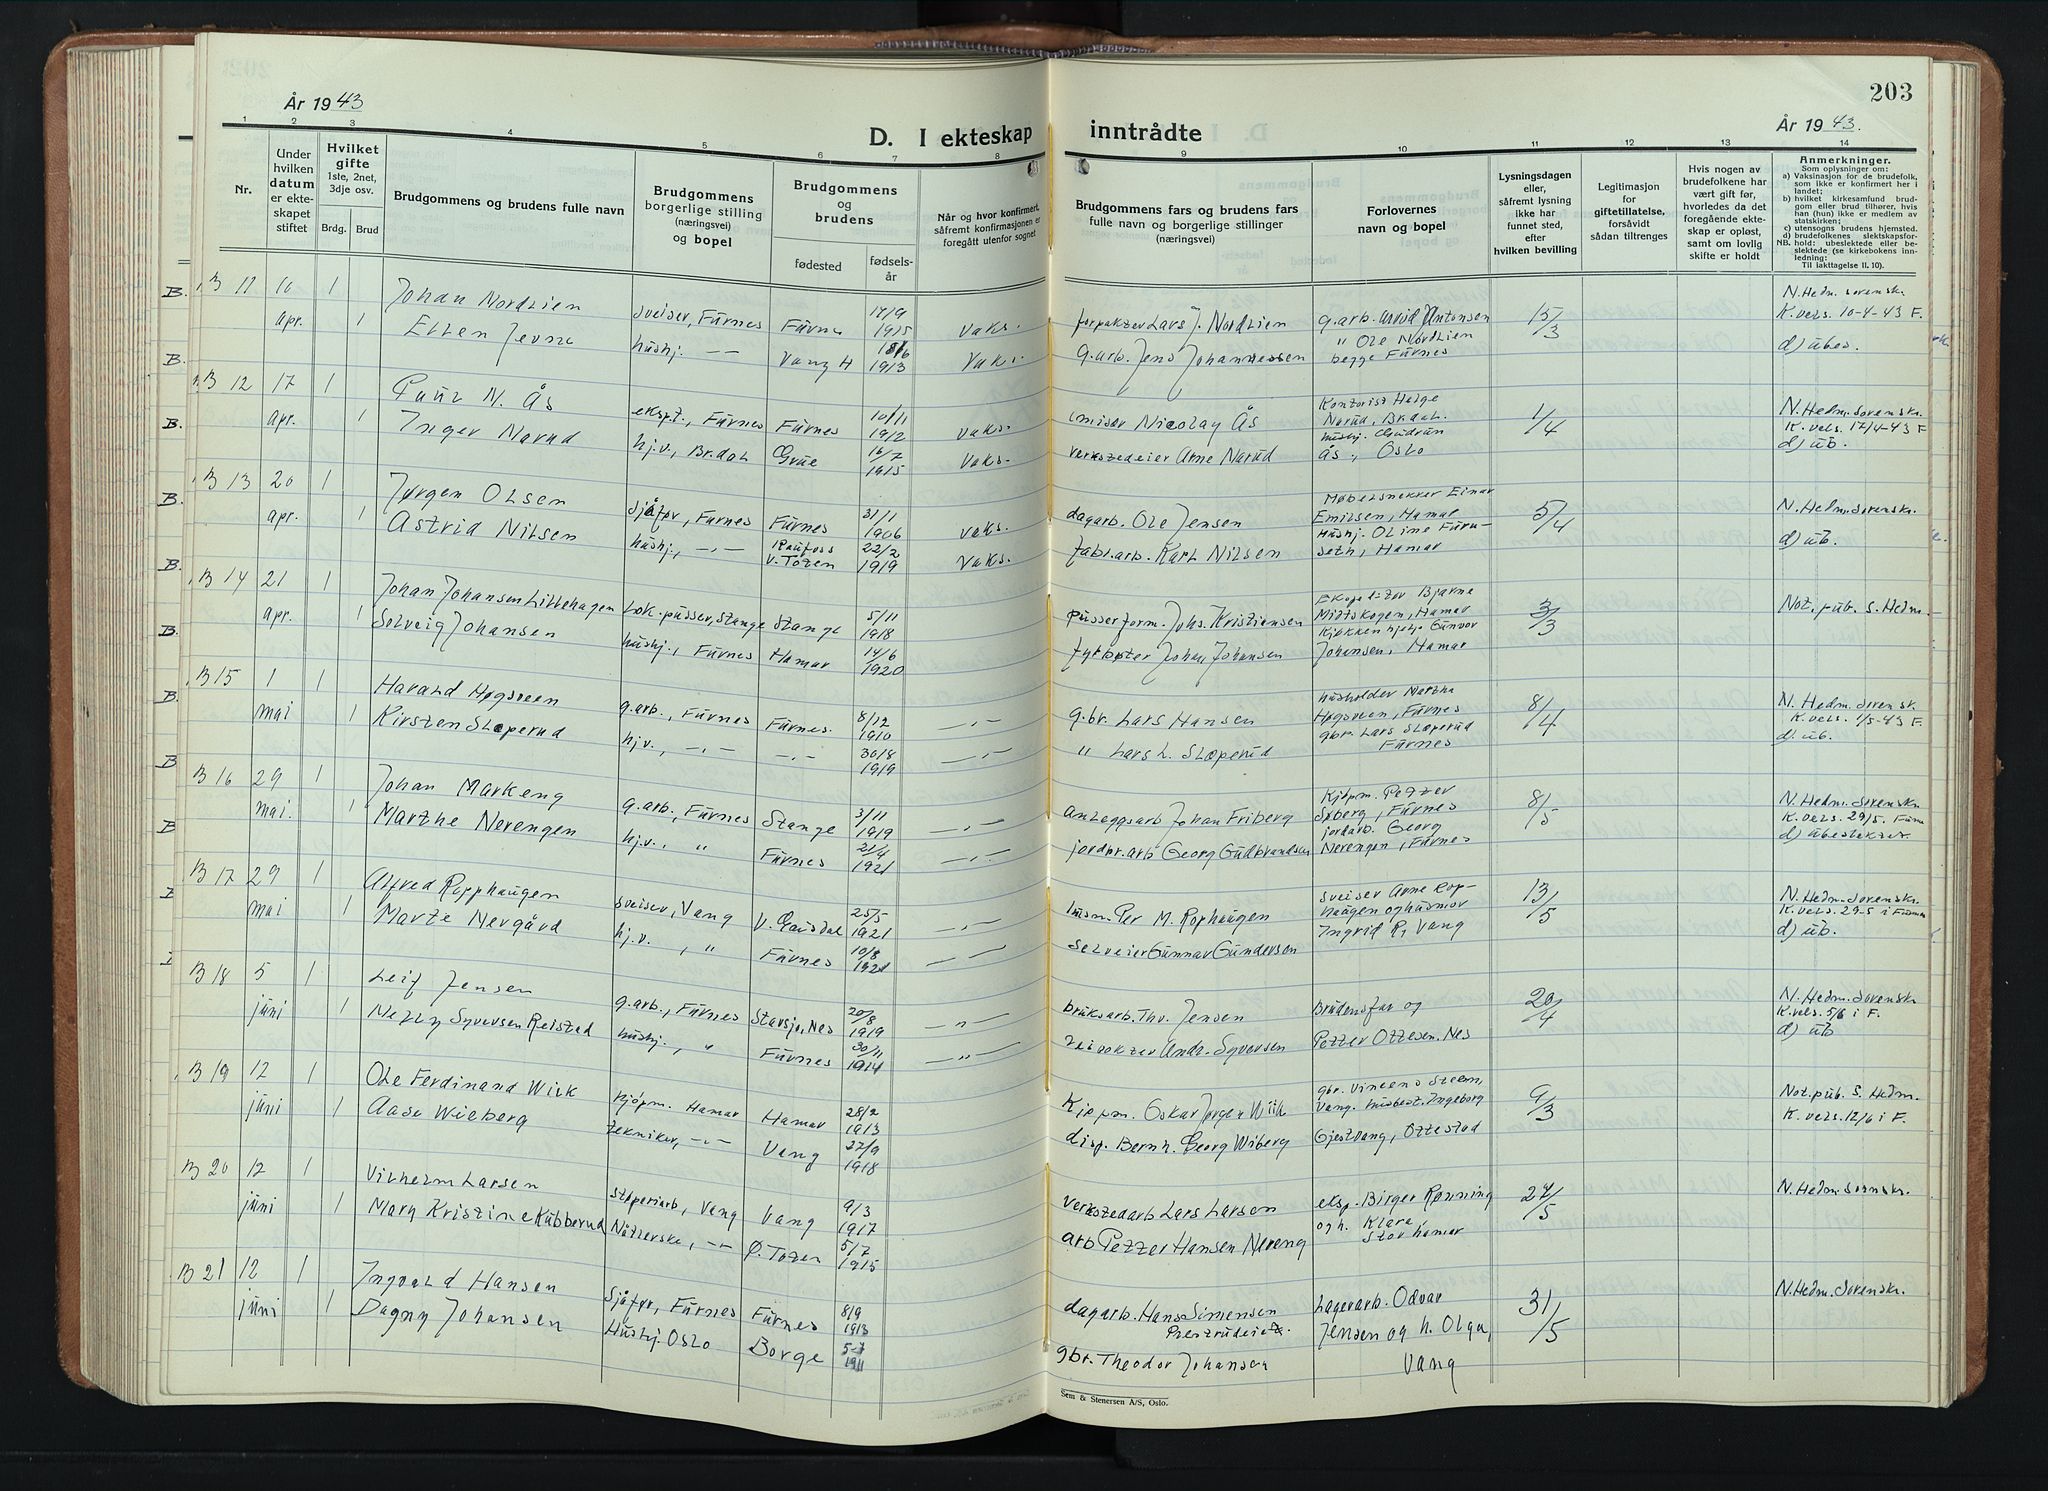 203
År 1943
D. I ekteskap inntrådte
År 1943.
1 2 3 4 5 6 7 8 9 10 11 12 13 14
Nr.
Under hvilken datum er ekteskapet stiftet
Hvilket gifte 1ste, 2net, 3dje osv.
Brdg. Brud
Brudgommens og brudens fulle navn
Brudgommens borgerlige stilling (næringsvei) og bopel
Brudgommens og brudens
fødested
fødselsår
Når og hvor konfirmert, såfremt konfirmasjonen er foregått utenfor sognet
Brudgommens fars og brudens fars fulle navn og borgerlige stillinger (næringsvei)
Forlovernes navn og bopel
Lysningsdagen eller, såfremt lysning ikke har funnet sted, efter hvilken bevilling
Legitimasjon for giftetillatelse, forsåvidt sådan tiltrenges
Hvis nogen av brudefolkene har vært gift før, hvorledes da det foregående ekteskap er opløst, samt om lovlig skifte er holdt
Anmerkninger.
Som oplysning om:
a) Vaksinasjon for de brudefolk, som ikke er konfirmert her i landet;
b) hvilket kirkesamfund brudgom eller brud tilhører, hvis han (hun) ikke er medlem av statskirken;
c) utensogns brudens hjemsted.
d) brudefolkenes slektskapsforhold: ubeslektede eller beslektede (se kirkebokens innledning:
NB. Til iakttagelse II. 10).
B 11 10 apr. 1 Johan Nordlien sveiser, Furnes Furnes 17/9 1915 vaks. forpakter Lars J. Nordlien g.arb. Arvid Antonsen 15/3 N. Hedm. sorenskr.
1 Ellen Jevne hushj. -"- Vang H 18/6 1913 Vaks. g.arb. Jens Johannessen " Ole Nordlien begge Furnes K.vels. 10-4-43 F. d) ubes.
B 12 17 apr. 1 Paul N. Ås eksp.t., Furnes Furnes 10/11 1912 vaks. Nicolay Ås Kontorist Helge Narud, Br.dal. 1/4 N. Hedm. Sorenskr.
1 Inger Narud hj.v., Br.dal Grue 16/7 1915 Vaks. verkstedeier Arne Narud hushj. Gudrun Ås, Oslo K. vels. 17/4-43 F d) ub.
B 13 20 apr. 1 Jørgen Olsen sjåfør, Furnes Furnes 31/1 1906 vaks. dagarb. Ole Jensen Møbelsnekker Einar Emilsen, Hamar 5/4 N. Hedm. Sorenskr.
1 Astrid Nilsen hushj., -"- Raufoss V. Toten 22/2 1919 Vaks. fabr.arb. Karl Nilsen Hushj. Oline Furuseth, Hamar d) ub.
B 14 21 apr. 1 Johan Johansen Lillehagen Lok.pusser, Stange Stange 5/11 1918 pusserform. Johs. Kristiansen Ekspeditør Bjarne Midtskogen, Hamar 3/3 Not. pub. S. Hedm.
1 Solveig Johansen hushj., Furnes Hamar 14/6 1920 fyrbøter Johan Johansen Kjøkkenhjelp Gunvor Johansen, Hamar
B 15 1 mai 1 Harald Høgsveen g.arb., Furnes Furnes. 8/12 1910 -"- g.br. Lars Hansen husholder Martha Høgsveen, Furnes 8/4 N. Hedm. Sorensk.
1 Kirsten Sløperud hj.v., -"- -"- 30/8 1919 -"- " Lars L. Sløperud gbr. Lars Sløperud Furnes K. vels. 1/5-43 F. d. ub.
B 16 29 mai. 1 Johan Markeng g.arb., Furnes Stange 3/11 1919 -"- anleggsarb Johan Friberg Kjøpm. Petter Søberg, Furnes 8/5 N. Hedm. Sorenskr.
1 Marthe Nerengen hj.v., " Furnes 21/4 1921 -"- jordbr.arb Georg Gudbrandsen jordarb. Georg Nerengen, Furnes K. vels. 29/5. Furnes d) ubeslektet.
B 17 29 mai 1 Alfred Ropphaugen sveiser, Vang V. Gausdal 25/5 1921 -"- Per M. Rophaugen sveiser Arne Rophaugen og husmor Ingrid R, Vang 13/5 N. Hedm. Sorenskr.
1 Marte Nergård hj.v., " Furnes 10/8 1921 -"- selveier Gunnar Gundersen K. vels. 29-5 i Furnes d) ub.
B 18 5 juni 1 Leif Jensen g.arb., Furnes Stavsjø, Nes 20/8 1919 -"- bruksarb. Thv. Jensen Brudens far og 20/4 N. Hedm. Sorenskr
1 Nelly Syversen Reistad hushj., " Furnes 30/11 1914 -"- Andr. Syversen Petter Ottesen. Nes K. vels. 5/6 i F. d) ub
B 19 12 juni 1 Ole Ferdinand Wiik kjøpm. Hamar Hamar 28/2 1913 Kjøpm. Oskar Jørgen Wiik gbr. Vincens Steen, Vang. 9/3 Not. pub. S. Hedm.
1 Aase Wieberg tekniker, -"- Vang 27/9 1918 disp. Bernh. Georg Wiberg husbest. Ingeborg Gjestvang, Ottestad K. vels. 12/6 i F.
B 20 12 juni 1 Vilhelm Larsen støperiarb, Vang Vang 9/3 1917 verkstedarb Lars Larsen eksp. Birger Rønning 27/5 N. Hedm. Sornskr.
1 Mary Kristine Kubberud Nåtlerske, -"- Ø. Toten 5/7 1915 arb Petter Hansen Nereng og h. Klara Storhamar
B 21 12 juni 1 Ingvald Hansen Sjåfør, Furnes Furnes 8/9 1913 dagarb. Hans Simensen Prestrudeiet. Lagerarb. Odvar 31/5 N. Hedm. Sorenskr.
1 Dagny Johansen Hushj. Oslo Borge 5-7 1911 gbr. Theodor Johansen Jensen og h. Olga, Vang
Sem & Stenersen A/S, Oslo.